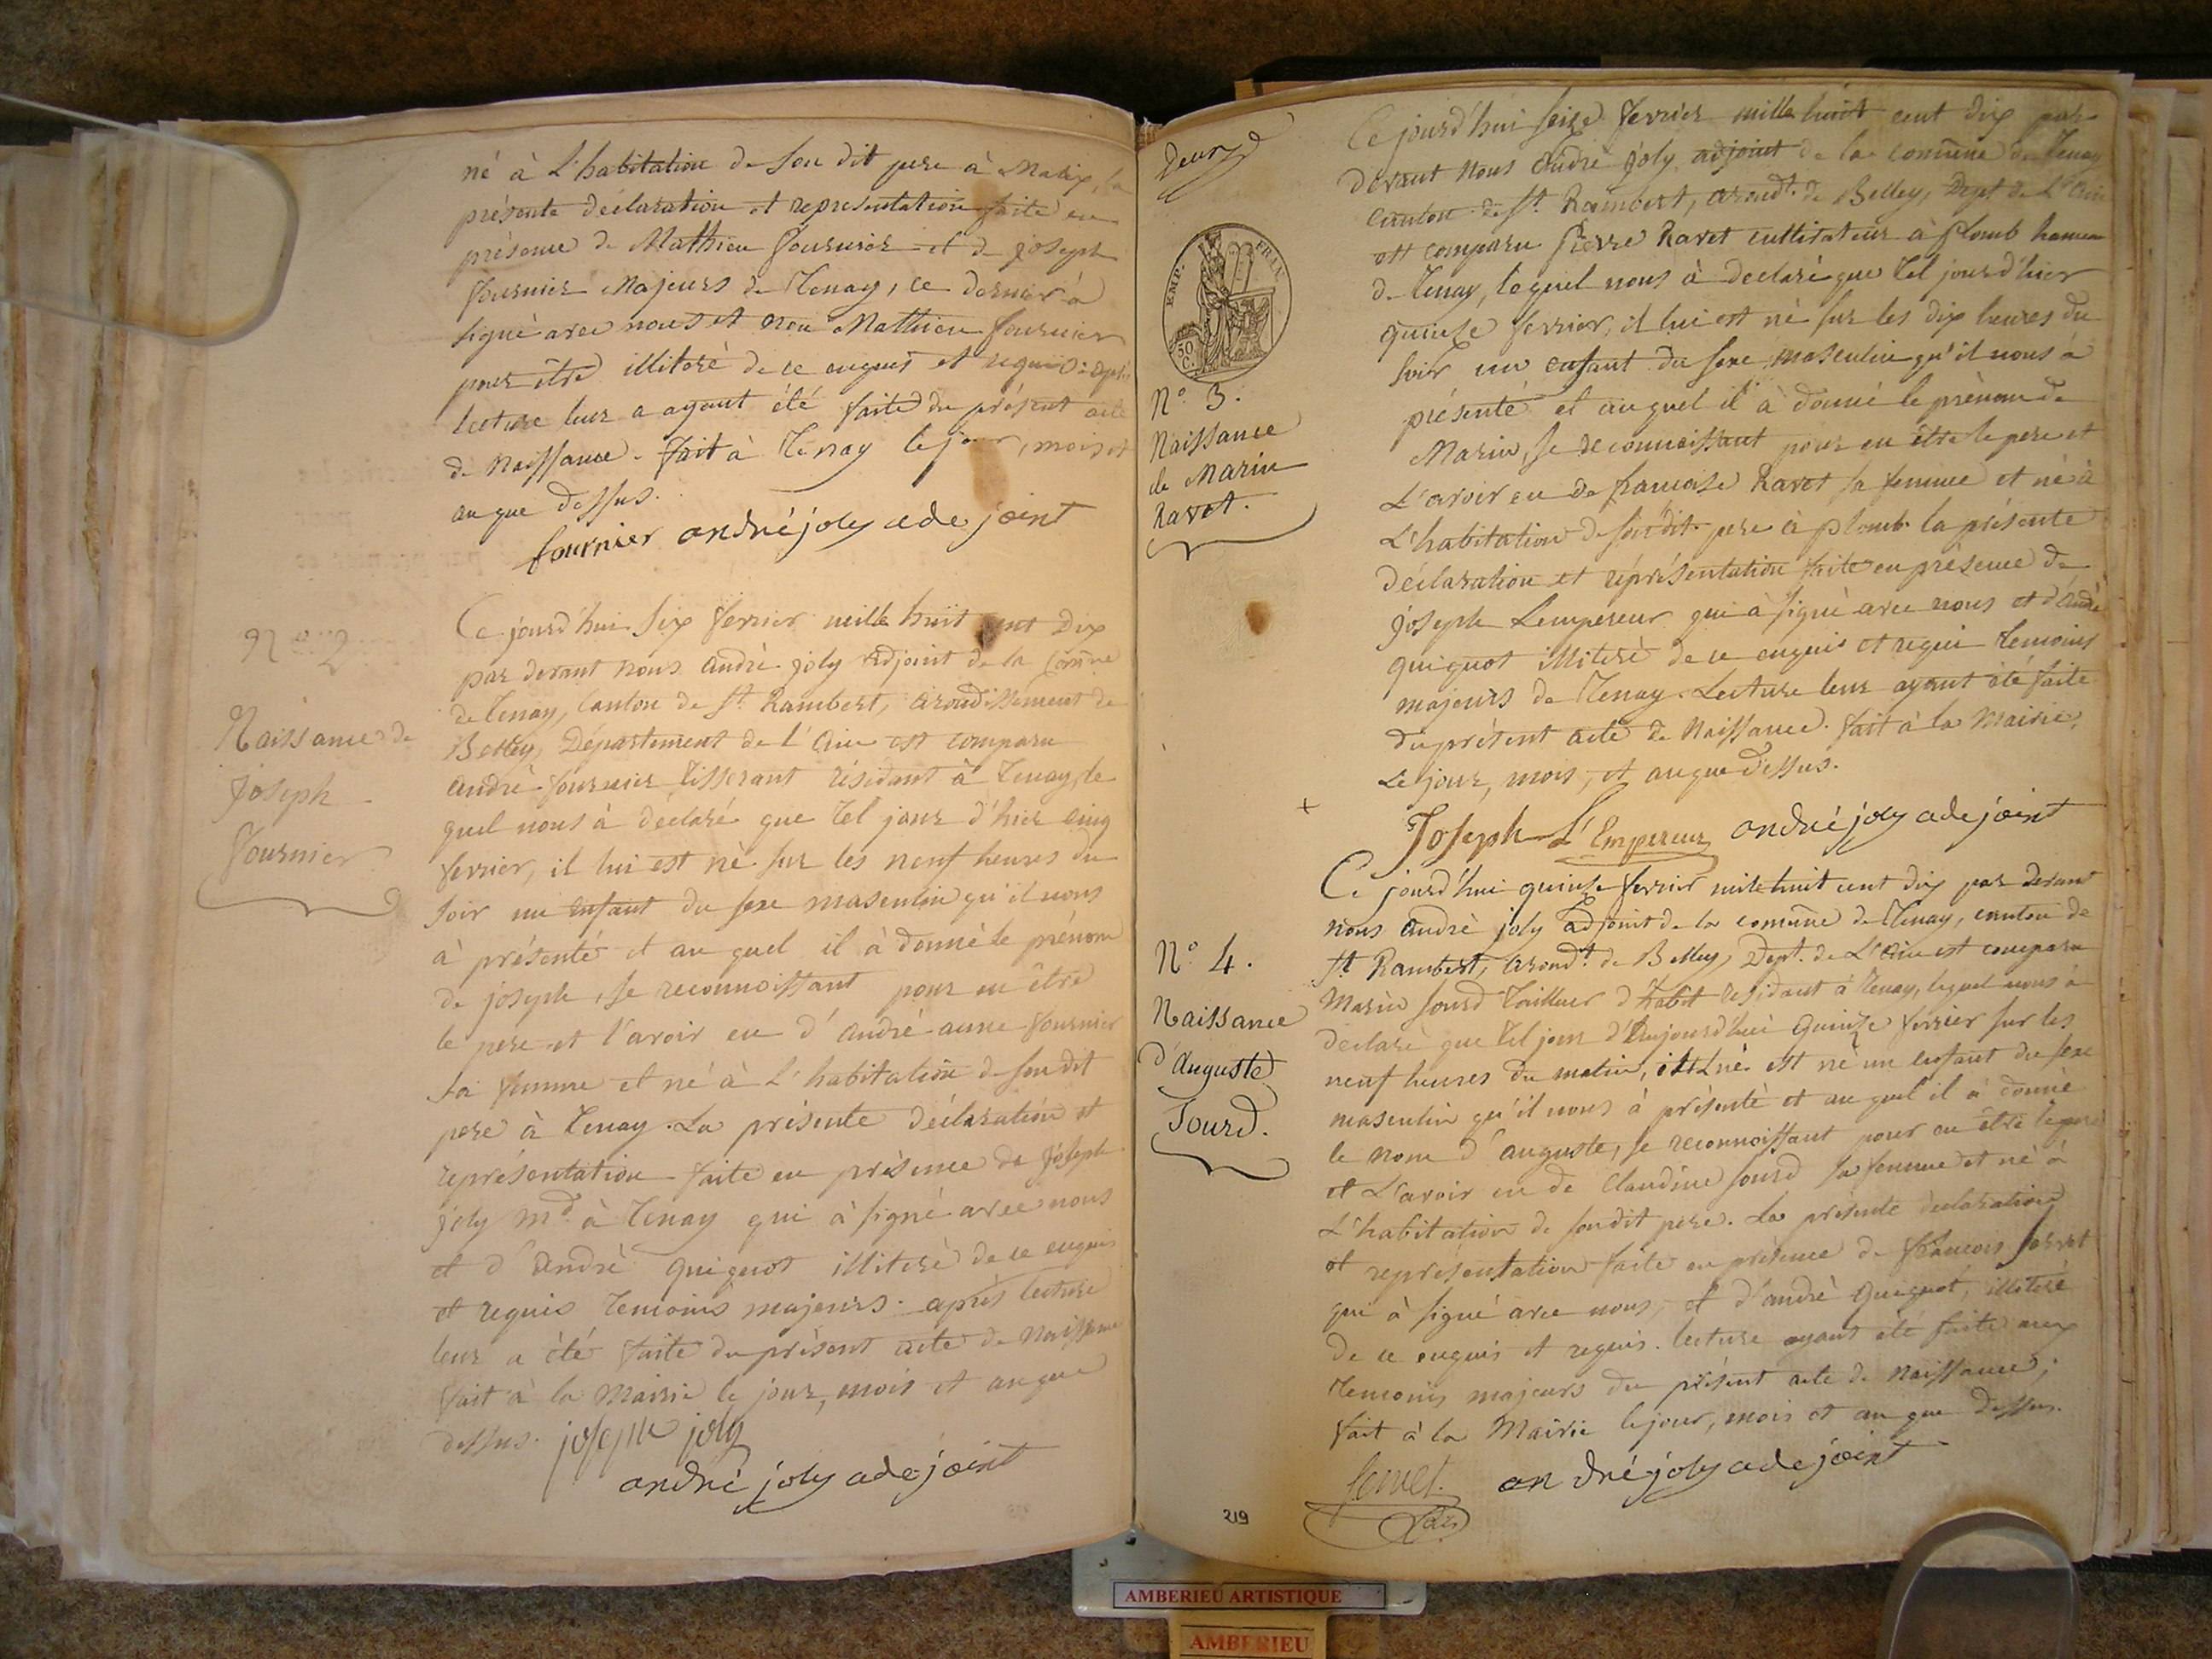 né à L'habitation de son dit pere à Malix, la
présente déclaration et representation faite en
présence de Mathieu fournier et de joseph
fournier Majeurs de Tenay, ce dernier à
signé avec nous et non Mathieu fournier
pour être illiteré de ce enquis et requis. après
lecture leur a ayant été faite du présent acte
de Naissance. fait à Tenay le jour, mois et
an que dessus.
fournier andré joly adejoint
N° 2
Naissance de
Joseph
fournier
Ce jourd'hui six fevrier mille huit cent Dix
par devant nous andrè joly adjoint de la Comñe
de Tenay, Canton de St. Rambert, arondissement de
Belley, Département de l'Ain est comparu
andrè fournier tisserant résidant à Tenay, le
quel nous à déclaré que tel jour d'hier cinq
fevrier, il lui est nè sur les neuf heures du
soir un enfant du sexe masculin qu'il nous
à présenté et au quel il à donnè le prénom
de joseph, se reconnoissant pour en être
le pere et l'avoir eu d'andré-anne fournier
sa femme et né à L'habitation de son dit
pere à Tenay. La présente déclaration et
représentation faite en présence de joseph
joly md. à Tenay qui à signé avec nous
et d'andrè quiguot illiteré de ce enquis
et requis temoins majeurs. après lecture
leur a été faite du présent acte de Naissance
fait à la Mairie le jour, mois et an que
dessus. joseph joly
andrè joly adejoint
Deux
EMP. FRAN.
50 C.
N° 3.
Naissance
de Marin
Ravet.
Ce jourd'hui seize fevrier mille huit cent dix par
devant nous andrè joly adjoint de la comune de Tenay
canton de St. Rambert, arondt. de Belley, Dept de L'Ain
est comparu Pierre Ravet cultivateur à plomb hameau
de Tenay, lequel nous à declaré que tel jourd'hier
quinze fevrier, il lui est né sur les dix heures du
soir un enfant du sexe masculin qu'il nous à
présenté et auquel il à donné le prénom de
Marin, se reconnoissant pour en être le pere et
L'avoir eu de francoise Ravet sa femme et né à
L'habitation de son dit pere à plomb la présente
déclaration et réprésentation faite en présence de
joseph Lempereur qui à signé avec nous et d'andrè
quiguot illiteré de ce enquis et requis temoins
majeurs de Tenay. Lecture leur ayant été faite
du présent acte de Naissance. fait à la Mairie,
Le jour, mois, et an que dessus.
+
Joseph L'Empereur andré joly adejoint
N° 4.
Naissance
d'auguste
Sourd.
Ce jourd'hui quinze fevrier mile huit cent dix par devant
nous andrè joly adjoint de la comune de Tenay, canton de
St Rambert, arondt. de Belley, Dept. de L'Ain est comparu
Marin sourd Tailleur d'habit résidant à Tenay, lequel nous à
declaré que tel jour d'aujourd'hui quinze fevrier sur les
neuf heures du matin, est né un enfant du sexe
masculin qu'il nous à présentè et au quel il à donnè
le nom d'auguste, se reconnoissant pour en être le pere
et L'avoir eu de Claudine sourd sa femme et né à
L'habitation de son dit pere. La présente declaration
et représentation faite en présence de françois
qui à signé avec nous, et d'andrè quiguot, illiteré
de ce enquis et requis. lecture ayant été faite aux
temoins majeurs du présent acte de Naissance;
fait à la Mairie le jour, mois et an que dessus.
andré joly adejoint
219
AMBERIEU ARTISTIQUE
AMBERIEU